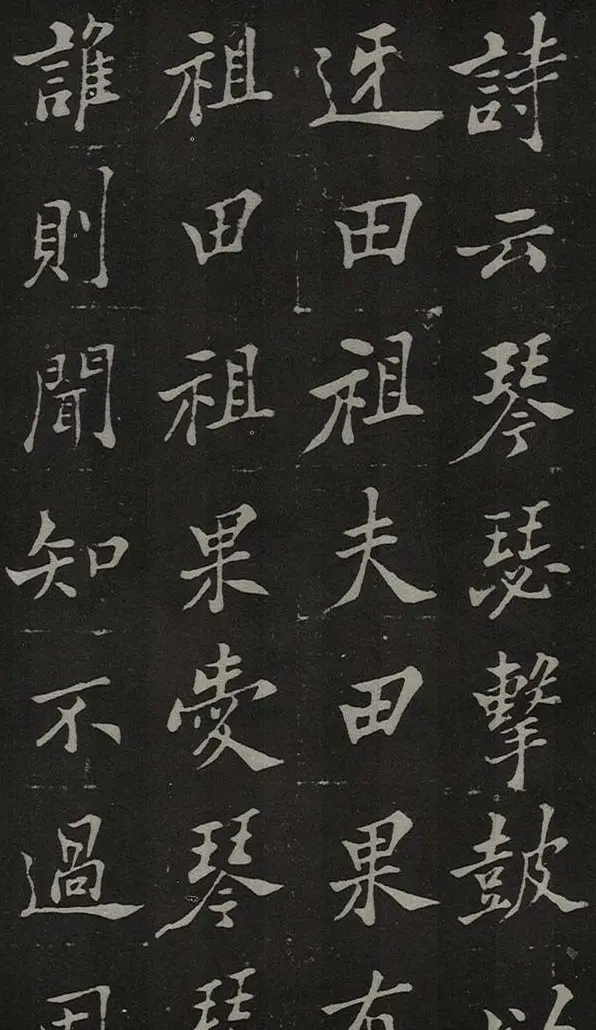 詩云琴瑟擊皷以
迓田祖夫田果有
祖田祖果愛琴
誰則聞知不過